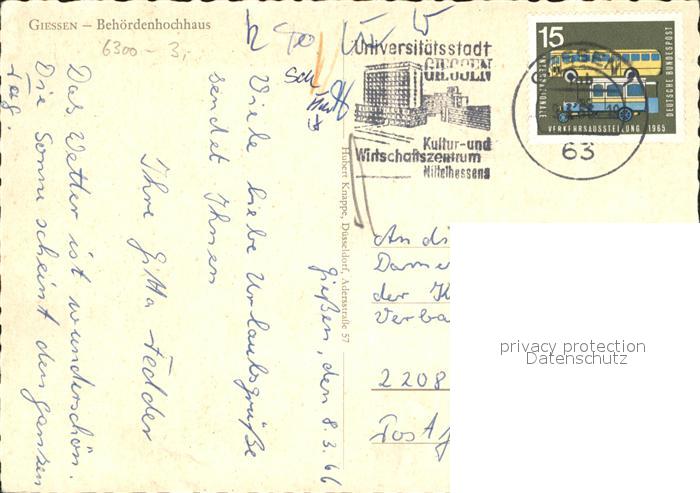 GIESSEN – Behördenhochhaus
6300 – 3,-
Universitätsstadt
GIESSEN
Kultur- und
Wirtschaftszentrum
Mittelhessens
15
DEUTSCHE BUNDESPOST
VERKEHRSAUSSTELLUNG 1965
63
Hubert Knappe, Düsseldorf, Adersstraße 57
Gießen, den 8.3.66
Viele liebe Urlaubsgrüße
sendet Ihnen
Ihre Gitta Fedder
Das Wetter ist wunderschön.
Die Sonne scheint den ganzen
Tag.
An di
Dame
der K
Verba
2208
privacy protection
Datenschutz